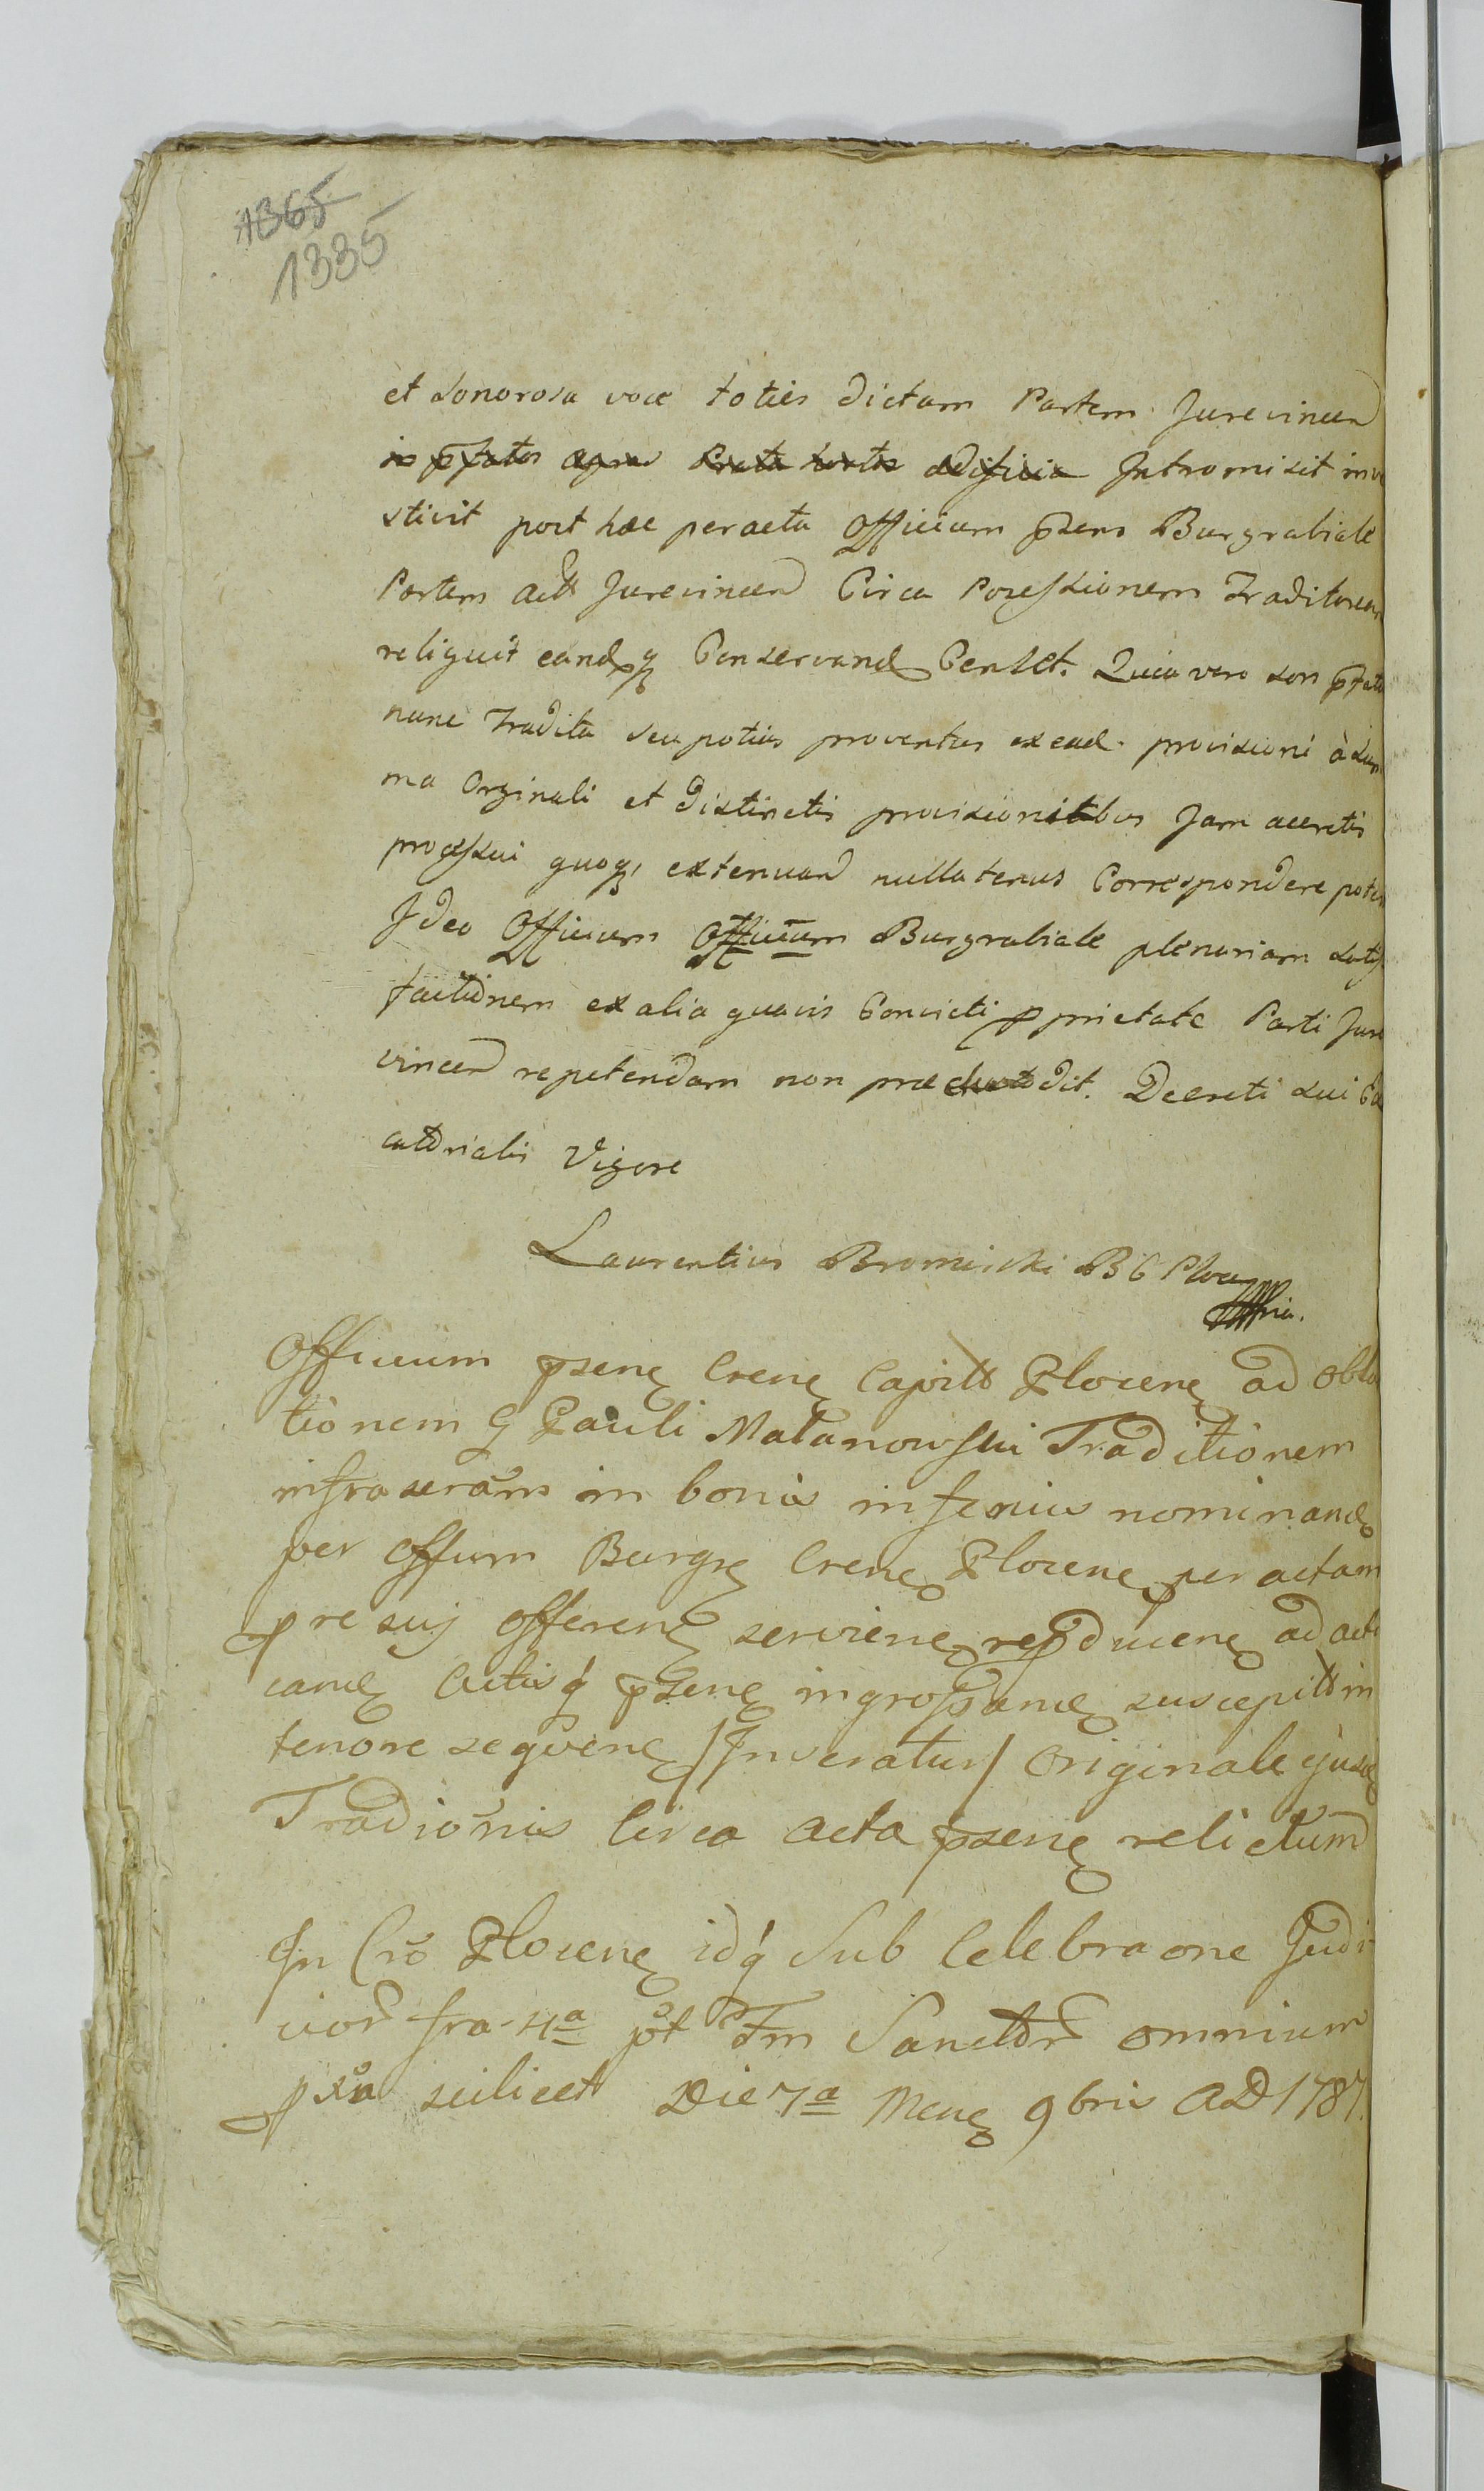 1365
1335
et sonorosa voce toties dictam Partem Jurevincen
in pfatos agros Prata hortos ædificia Intromisit inve
stivit post hæc peracta Officium psens Burgrabiale
Partem Act Jurevincen Circa Possessionem Traditoream
reliquit eandqq Conservand Censet. Quia vero bon pfata
nunc Tradita seu potius proventus ex ead provisioni à Sum
ma Orginali et distinctis provisionibus Jam accretis
processui quoq extenuand nullatenus Correspondere potest
Ideo Officium Officium Burgrabiale plenariam satis
factionem ex alia quavis Convicti pprietate Parti Jure
vincen repetendam non præcludit. Decreti sui Exe
cutorialis Vigore
Laurentius Bromirski B G Ploc
mpria.
Officium psens Crens Capitt Plocens ad obla
tionem G Pauli Matanowski Traditionem
infraseram in bonis inferius nominand
per Offium Burgr Crens Plocens peractam
p re suj offerens serviens repducens ad acti
cand Actisq psens ingrossand suscepitt in
tenore sequens /Inseratur/ Originale ejusd
Tradionis Circa acta psens relictum
In Cro Plocens idq Sub Celebraone Judi
cior fra 4a pt Fm Sanctor omnium
pxa scilicet Die 7a Mens 9bris AD 1787.